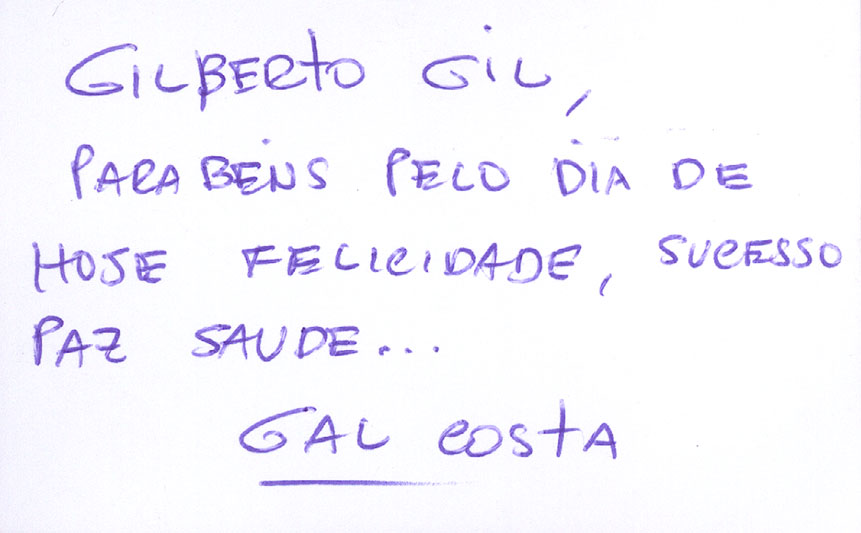 GILBERTO GIL,
PARABENS PELO DIA DE
HOJE FELICIDADE, SUCESSO
PAZ SAUDE...
GAL COSTA